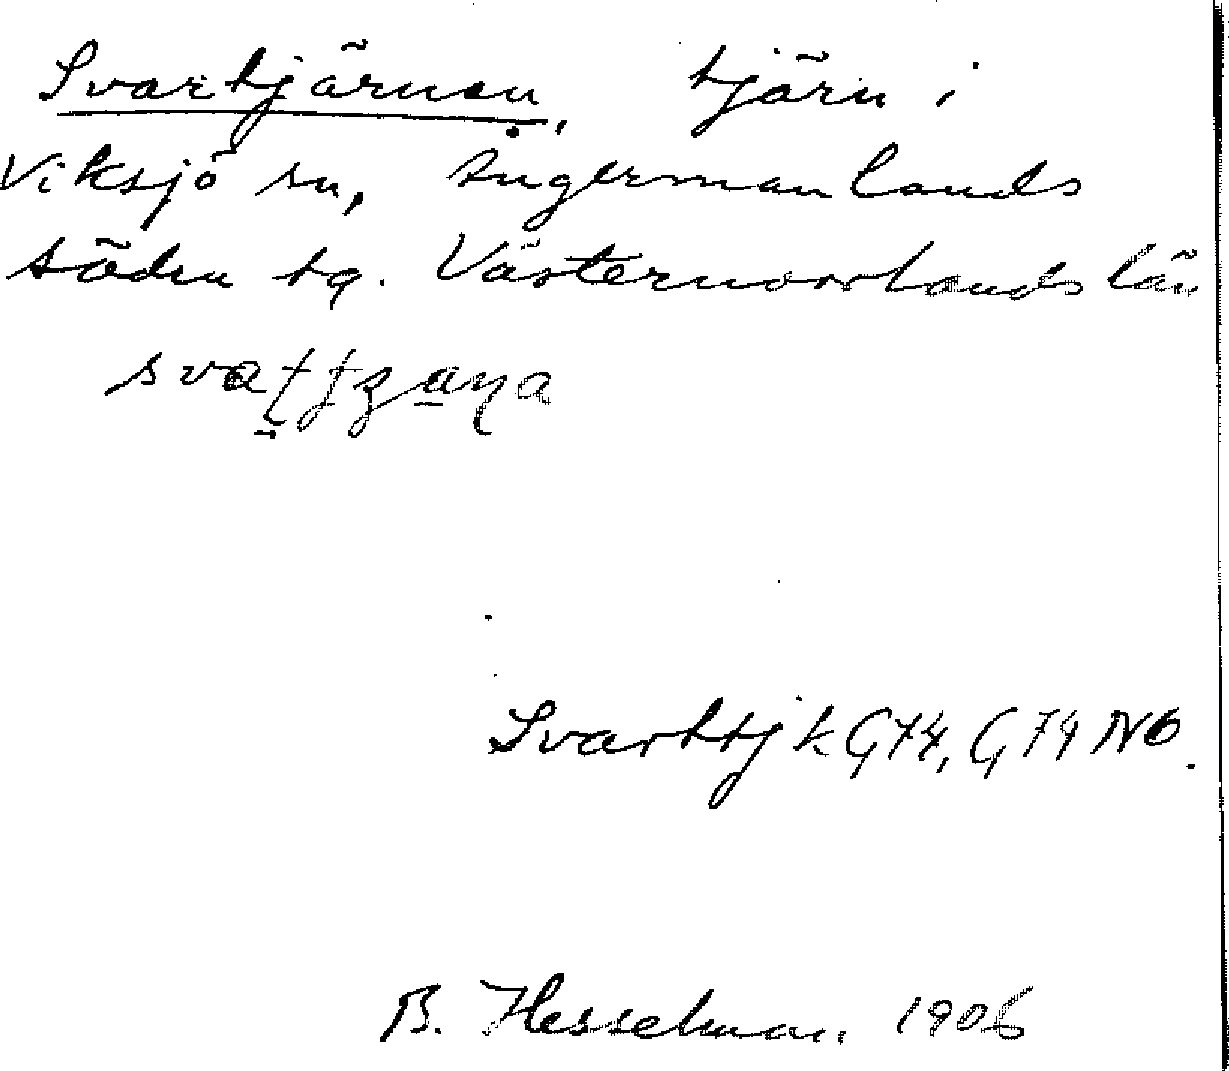 Svartjärnen, tjärn i
Viksjö sn, Ångermanlands
södra tg. Västernorrlands län
Svarttj k G74, G74 NO.
B. Hesselman. 1906